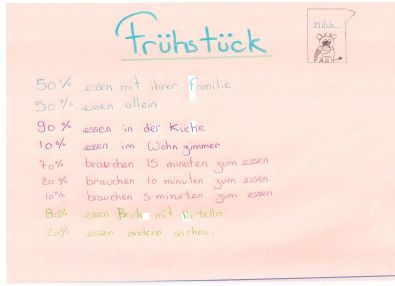 Frühstück
Milch
50% essen mit ihrer Familie
50% essen allein
90% essen in der Küche
10% essen im Wohnzimmer
70% brauchen 15 minuten zum essen
20% brauchen 10 minuten zum essen
10% brauchen 5 minuten zum essen
80% essen Brot mit Nutella
20% essen andere sachen.